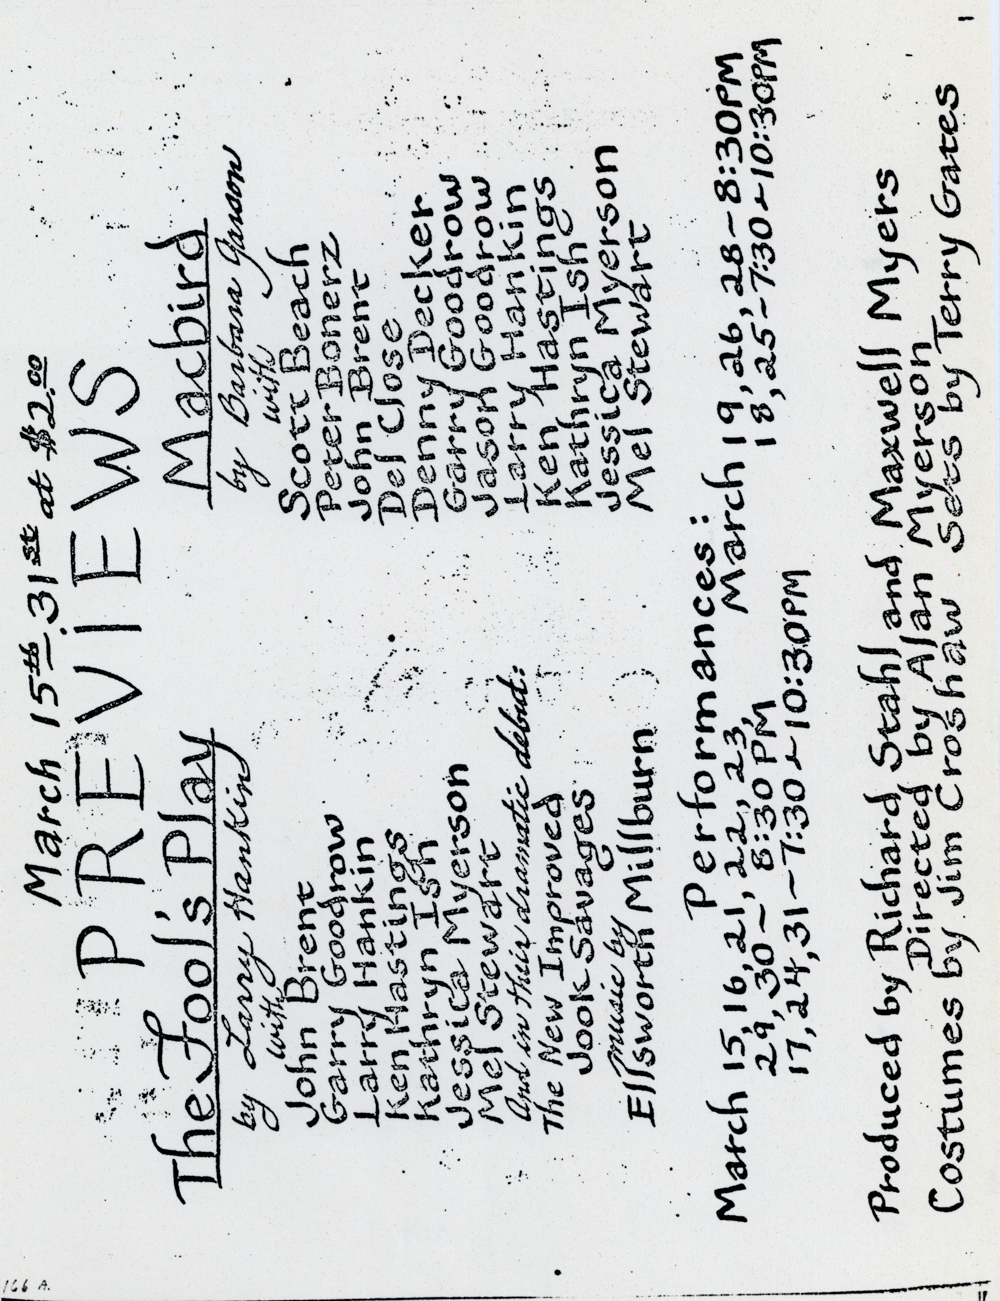 March 15th-31st at $2.00
PREVIEWS
The Fool's Play
by Larry Hankin
with
John Brent
Garry Goodrow
Larry Hankin
Ken Hastings
Kathryn Ish
Jessica Myerson
Mel Stewart
And in their dramatic debut:
The New Improved
Jook Savages
music by
Ellsworth Millburn
Macbird
by Barbara Garson
with
Scott Beach
Peter Bonerz
John Brent
Del Close
Denny Decker
Garry Goodrow
Jason Goodrow
Larry Hankin
Ken Hastings
Kathryn Ish
Jessica Myerson
Mel Stewart
Performances:
March 15, 16, 21, 22, 23,
29, 30 ~, 8:30 PM
17, 24, 31 ~ 7:30 ~ 10:30PM
March 19, 26, 28 - 8:30PM
18, 25 - 7:30 ~ 10:30PM
Produced by Richard Stahl and Maxwell Myers
Directed by Alan Myerson
Costumes by Jim Croshaw Sets by Terry Gates
166 A.